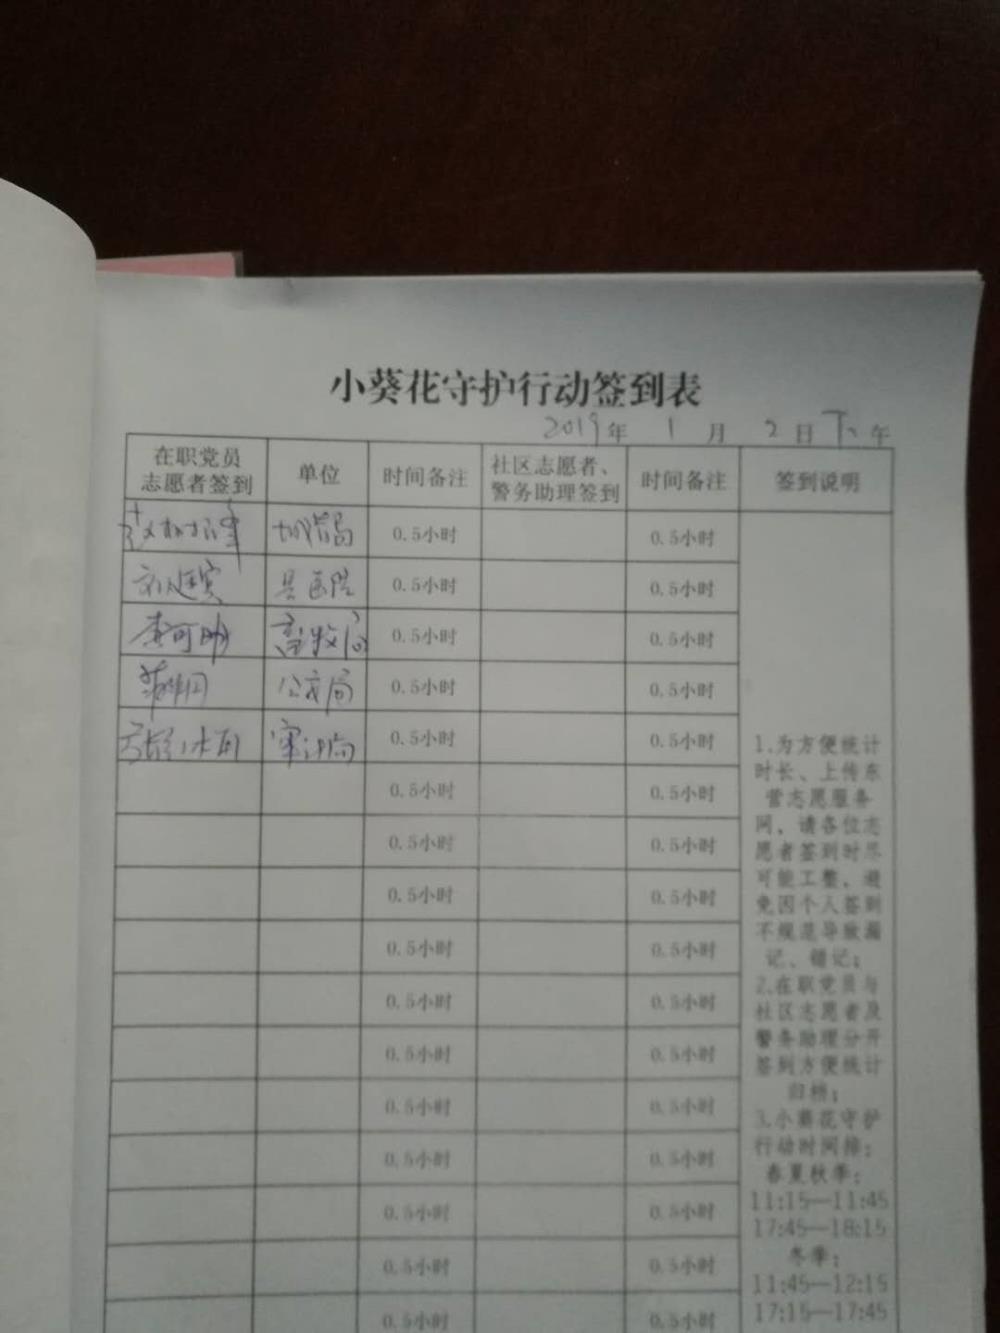 小葵花守护行动签到表
2019年 1月 2日 下午
在职党员
志愿者签到
单位
时间备注
社区志愿者、
警务助理签到
时间备注
签到说明
0.5小时 0.5小时
县医院 0.5小时 0.5小时
畜牧局 0.5小时 0.5小时
公安局 0.5小时 0.5小时
审计局 0.5小时 0.5小时
0.5小时 0.5小时
0.5小时 0.5小时
0.5小时 0.5小时
0.5小时 0.5小时
0.5小时 0.5小时
0.5小时 0.5小时
0.5小时 0.5小时
0.5小时 0.5小时
0.5小时 0.5小时
0.5小时 0.5小时
0.5小时 0.5小时
1.为方便统计
时长、上传东
营志愿服务
网，请各位志
愿者签到时尽
可能工整，避
免因个人签到
不规范导致漏
记、错记；
2.在职党员与
社区志愿者及
警务助理分开
签到方便统计
归档；
3.小葵花守护
行动时间排：
春夏秋季：
11:15—11:45
17:45—18:15
冬季：
11:45—12:15
17:15—17:45